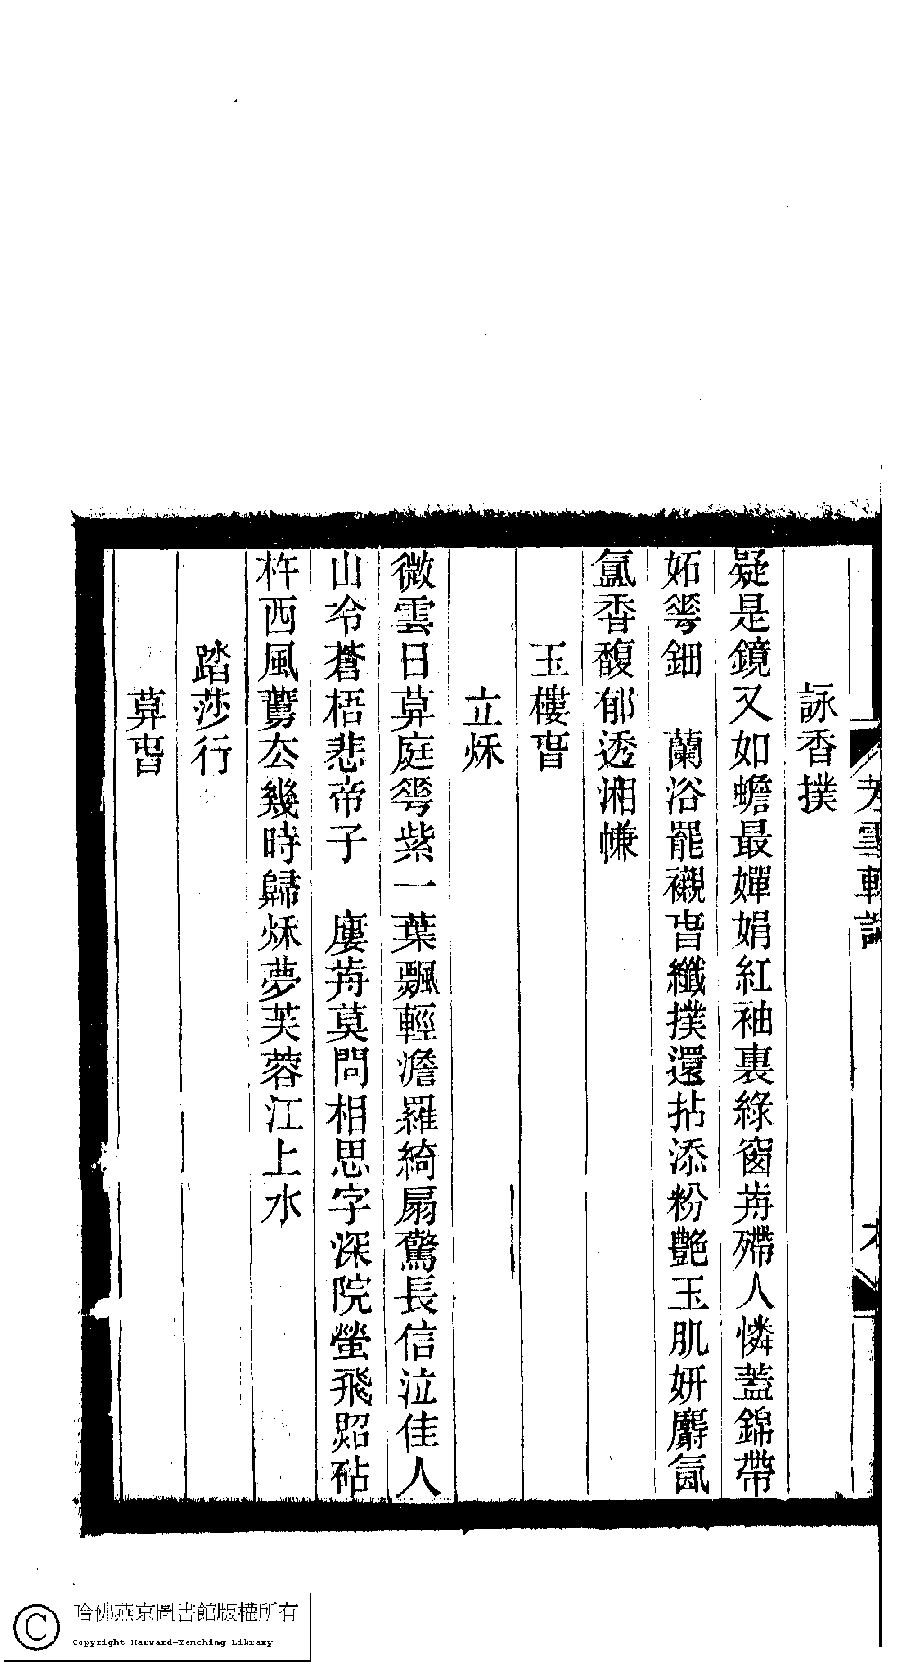 詠香撲
疑是鏡又如蟾最嬋娟紅袖裏綠窗前殢人憐蓋錦帶
妬花鈿　蘭浴罷襯春纖撲還拈添粉艷玉肌姸麝氤
氳香馥郁透湘㡘
玉樓春
立秌
微雲日莫庭花紫一葉飄輕澹羅綺扇驚長信泣佳人
山令蒼梧悲帝子　廔前莫問相思字深院螢飛照砧
杵西風鴈去幾時歸秌夢芙蓉江上水
踏莎行
莫春
芳雪軒詞
哈佛燕京圖書館版權所有
Copyright Harvard-Yenching Library